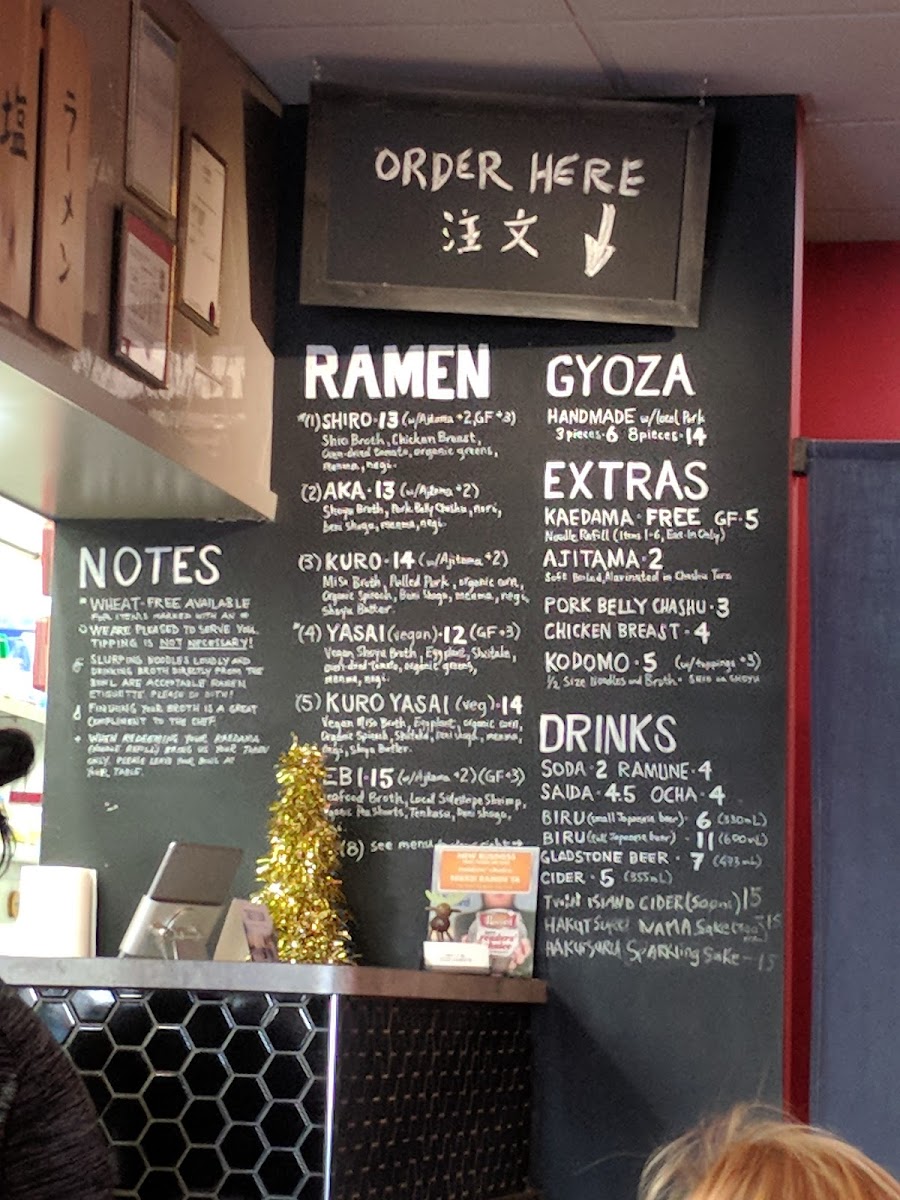 塩
ラーメン
ORDER HERE
注文
RAMEN
*(1) SHIRO·13 (w/Ajitama +2, GF +3)
Shio Broth, Chicken Breast,
Oven-dried tomato, organic greens,
menma, negi.
(2) AKA·13 (w/Ajitama +2)
Shoyu Broth, Pork Belly Chashu, nori,
Beni Shoga, menma, negi.
(3) KURO·14 (w/Ajitama +2)
Miso Broth, Pulled Pork, organic corn,
Organic Spinach, Beni Shoga, menma, negi,
Shoyu Butter.
*(4) YASAI (vegan)·12 (GF+3)
Vegan Shoyu Broth, Eggplant, Shiitake,
oven-dried tomato, organic greens,
menma, negi.
(5) KURO YASAI (veg)·14
Vegan Miso Broth, Eggplant, organic corn,
Organic Spinach, Shiitake, Beni shoga, menma,
negi, Shoyu Butter.
EBI·15 (w/Ajitama +2) (GF+3)
Seafood Broth, Local Sidestripe Shrimp,
Organic Pea Shoots, Tenkasu, Beni shoga,
(8) see menu
GYOZA
HANDMADE w/local Pork
3 pieces·6 8 pieces·14
EXTRAS
KAEDAMA·FREE GF·5
Noodle Refill (Items 1-6, Eat-In Only)
AJITAMA·2
Soft Boiled, Marinated in Chashu Tare
PORK BELLY CHASHU·3
CHICKEN BREAST·4
KODOMO·5 (w/toppings +3)
1/2 Size Noodles and Broth - SHIO or SHOYU
DRINKS
SODA·2 RAMUNE·4
SAIDA·4.5 OCHA·4
BIRU (small Japanese beer)· 6 (330mL)
BIRU (full Japanese beer)· 11 (600mL)
GLADSTONE BEER· 7 (473mL)
CIDER·5 (355mL)
TWIN ISLAND CIDER 15
HAKUTSURU NAMA Sake 15
HAKUTSURU SPARKING Sake - 15
NOTES
* WHEAT-FREE AVAILABLE
FOR ITEMS MARKED WITH AN *
WE ARE PLEASED TO SERVE YOU.
TIPPING IS NOT NECESSARY!
SLURPING NOODLES LOUDLY AND
DRINKING BROTH DIRECTLY FROM THE
BOWL ARE ACCEPTABLE RAMEN
ETIQUETTE. PLEASE DO BOTH!
FINISHING YOUR BROTH IS A GREAT
COMPLIMENT TO THE CHEF.
WHEN REDEEMING YOUR KAEDAMA
(NOODLE REFILL) BRING US YOUR TOKEN
ONLY. PLEASE LEAVE YOUR BOWL AT
YOUR TABLE.
NEW BUSINESS
readers'
choice